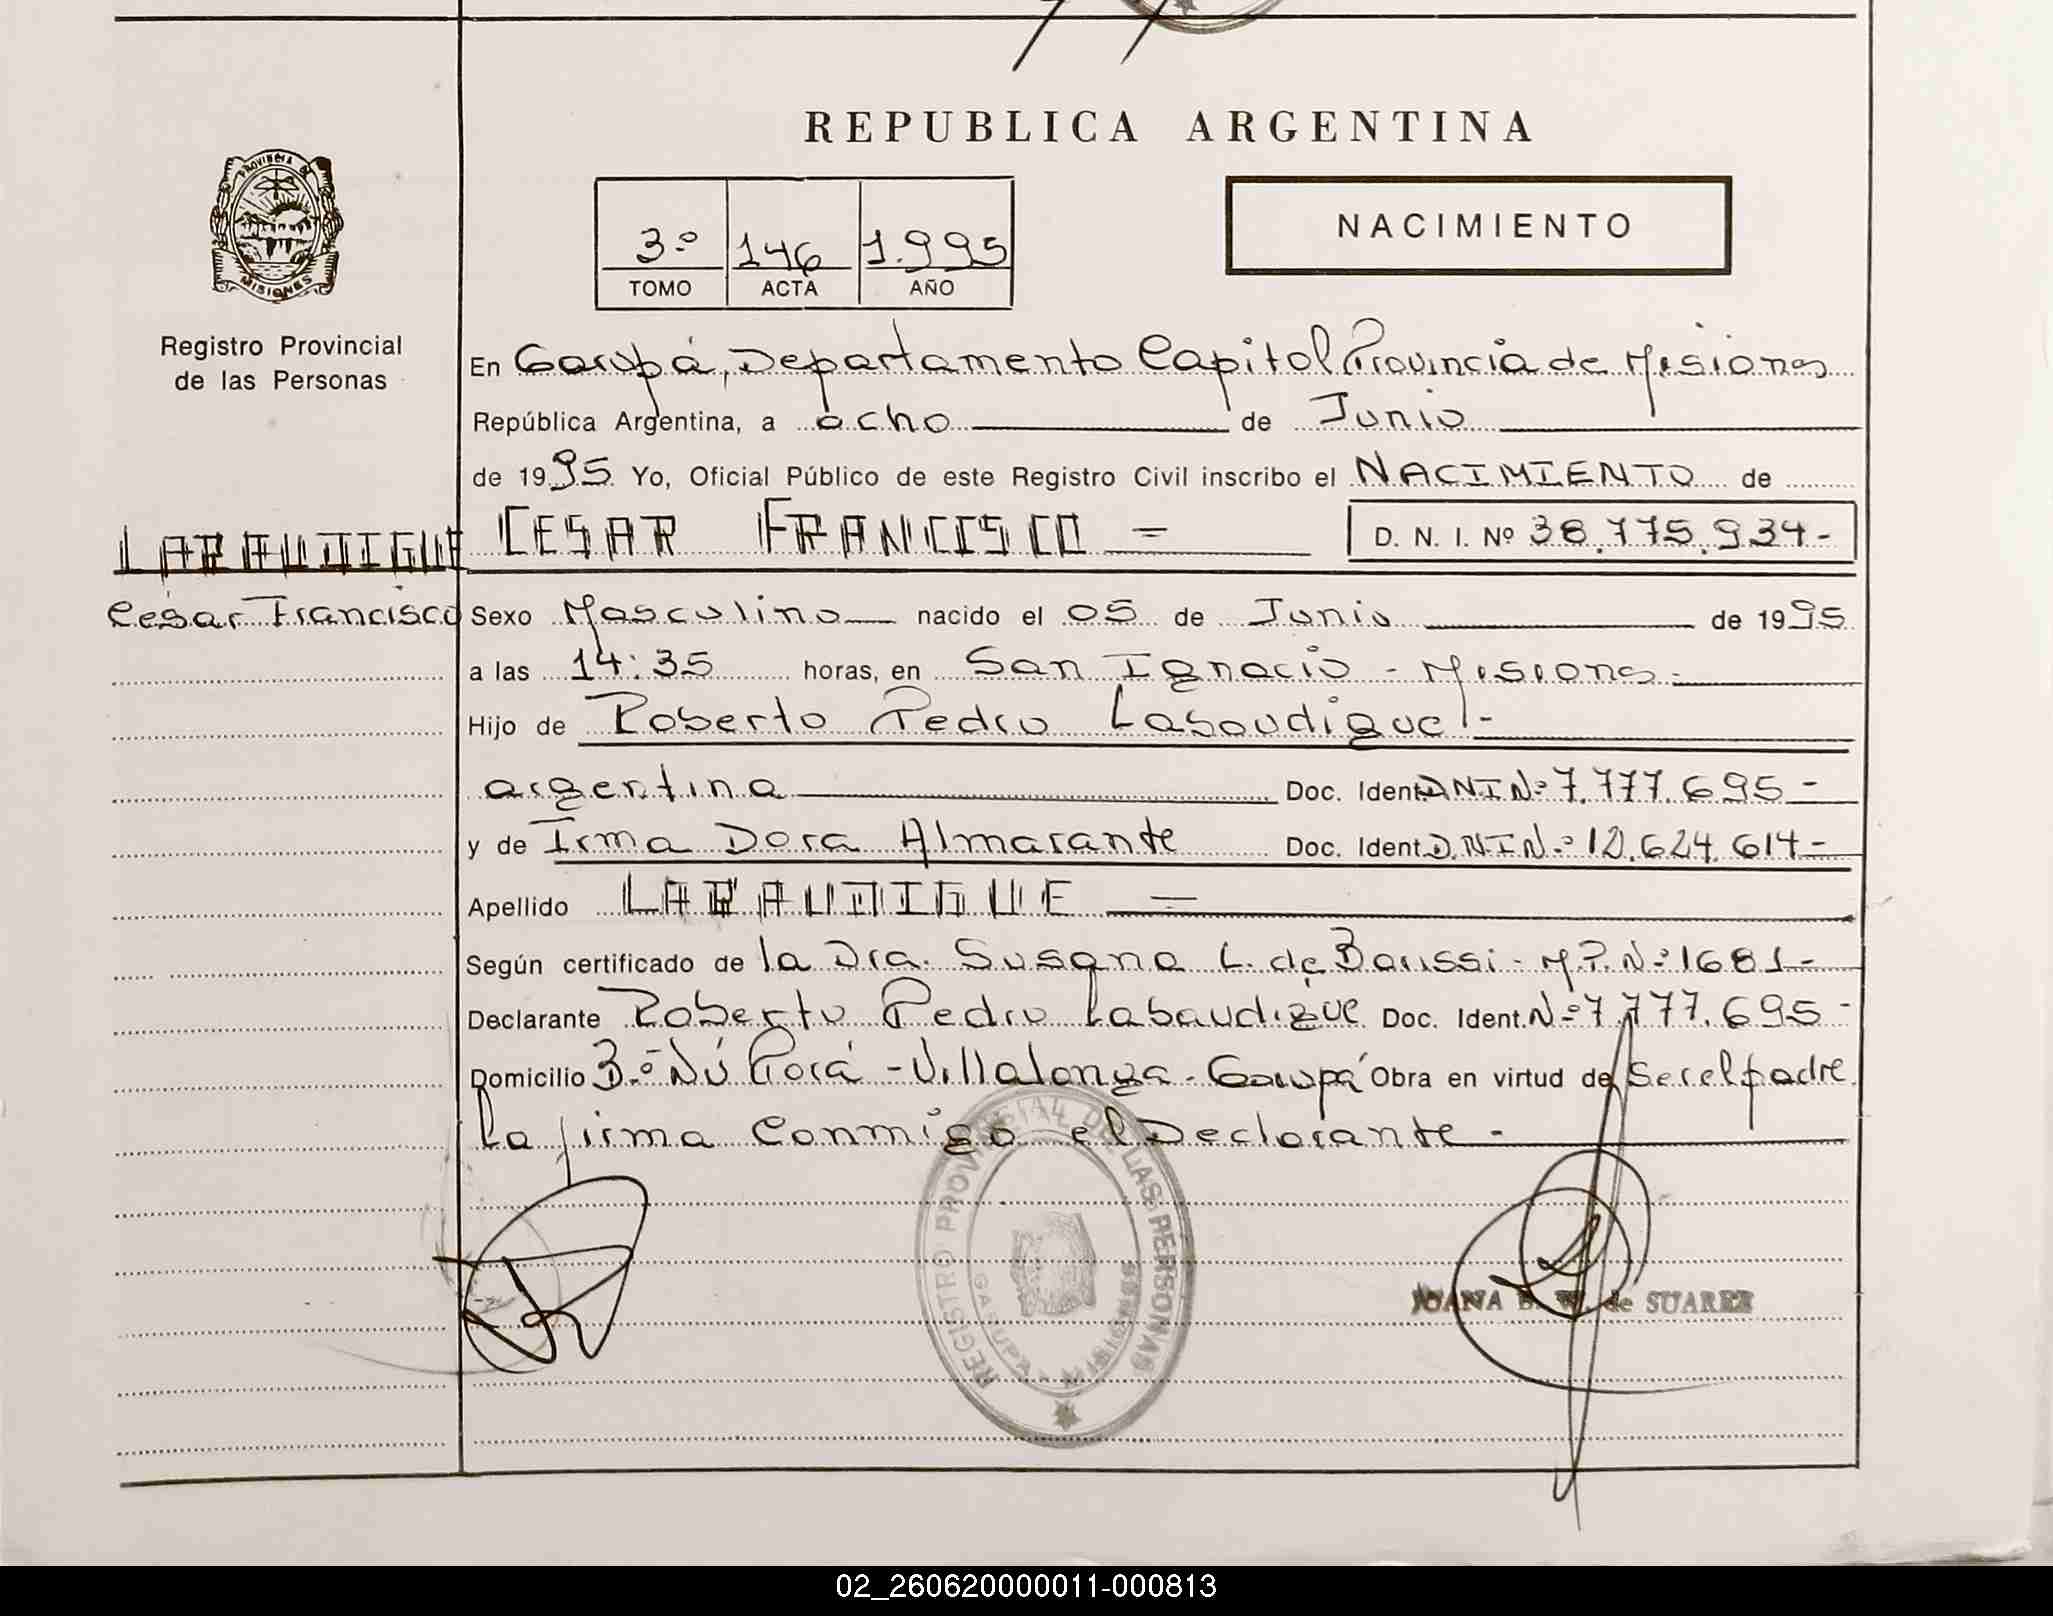 REPUBLICA ARGENTINA
PROVINCIA DE MISIONES
Registro Provincial
de las Personas
3º 146 1.995
TOMO ACTA AÑO
NACIMIENTO
En Garupá, Departamento Capital Provincia de Misiones
República Argentina, a ocho de Junio
de 1995 Yo, Oficial Público de este Registro Civil inscribo el NACIMIENTO de
LABAUDIGUE CESAR FRANCISCO = D. N. I. Nº 38.775.934-
Cesar Francisco
Sexo Masculino nacido el 05 de Junio de 1995
a las 14:35 horas, en San Ignacio - Misiones -
Hijo de Roberto Pedro Labaudigue -
argentina Doc. Ident. DNI Nº 7.777.695 -
y de Irma Dora Almarante Doc. Ident. D.N.I N.º 12.624.614 -
Apellido LABAUDIGUE =
Según certificado de la Dra. Susana L. de Baussi - M.P. Nº 1681 -
Declarante Roberto Pedro Labaudigue Doc. Ident. Nº 7.777.695 -
Domicilio Bº Ñú Porá - Villalonga - Garupá Obra en virtud de ser el padre
La firma conmigo el Declarante -
REGISTRO PROVINCIAL DE LAS PERSONAS
GARUPA - MISIONES
JUANA E. W. de SUAREZ
02_260620000011-000813